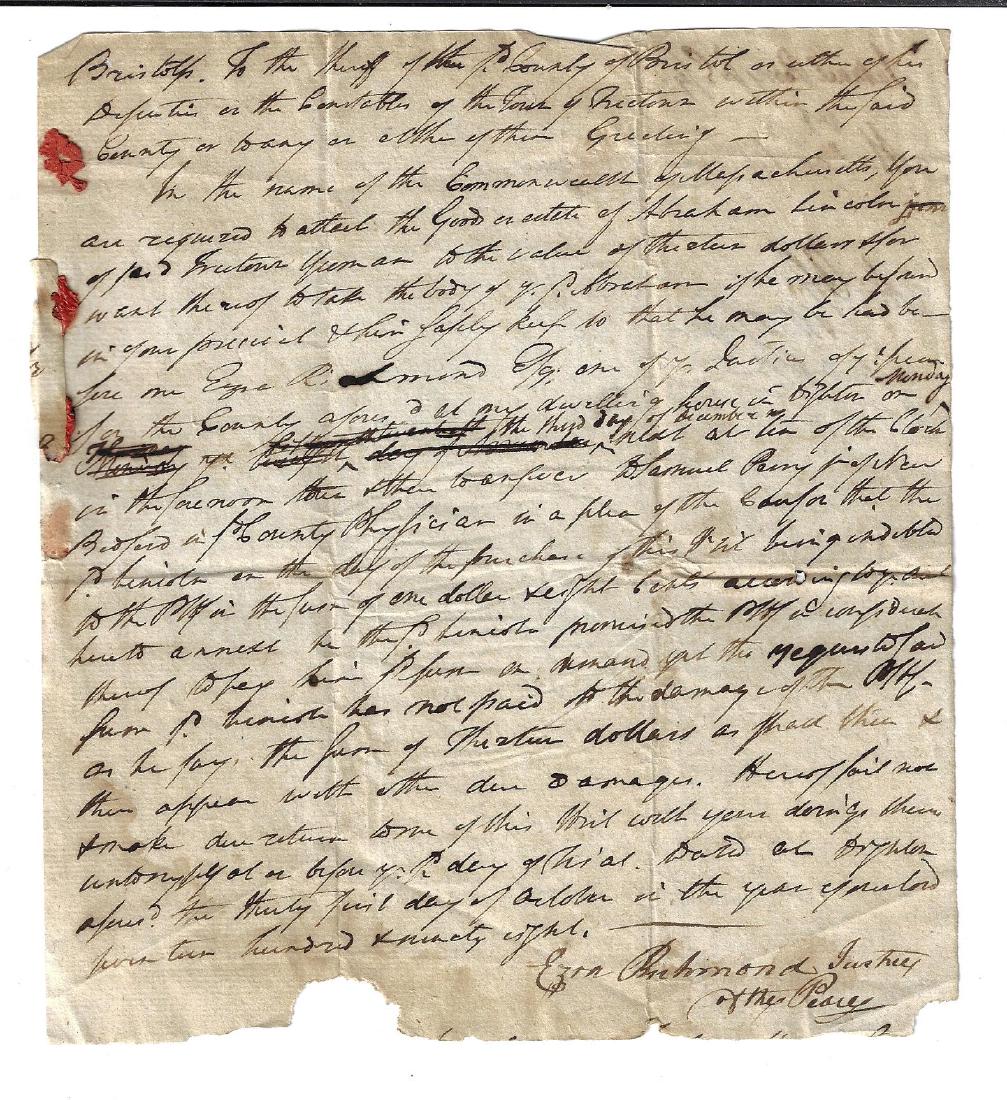 Bristol ss. To the Sheriff of the sd. County of Bristol or either of his
Deputies or the Constables of the Town of Freetown within the said
County or to any or either of them Greeting —
In the name of the Commonwealth of Massachusetts, You
are required to attach the Goods or estate of Abraham Lincoln
of said Freetown Yeoman to the value of thirteen dollars & for
want thereof to take the body of ye. sd. Abraham if he may be found
in your precinct & him safely keep so that he may be had be—
fore me Ezra Richmond Esq; one of ye Justices of ye peace
for the County aforesd at my dwelling house in Dighton on Monday
the third day of December next at ten of the Clock
in the forenoon then & there to answer to Samuel Perry of New
Bedford in sd County Physician in a plea of the Case for that the
sd. Lincoln on the day of the purchase of this Writ being indebted
to the Pltf in the sum of one dollar & eight Cents according to ye. acct
hereto annexed he the sd Lincoln promised the Pltf in consideratn
thereof to pay him sd sum on demand, yet tho requested said
sum sd. Lincoln has not paid to the damage of the Pltf,
as he says, the sum of Thirteen dollars as shall then &
there appear with other due Damages. Hereof fail not
& make due return to me of this Writ with your doings therein
unto myself at or before ye. sd day of trial. Dated at Dighton
aforesd. the thirty first day of October in the year of our Lord
seventeen hundred & ninety eight. —
Ezra Richmond Justice
of the Peace